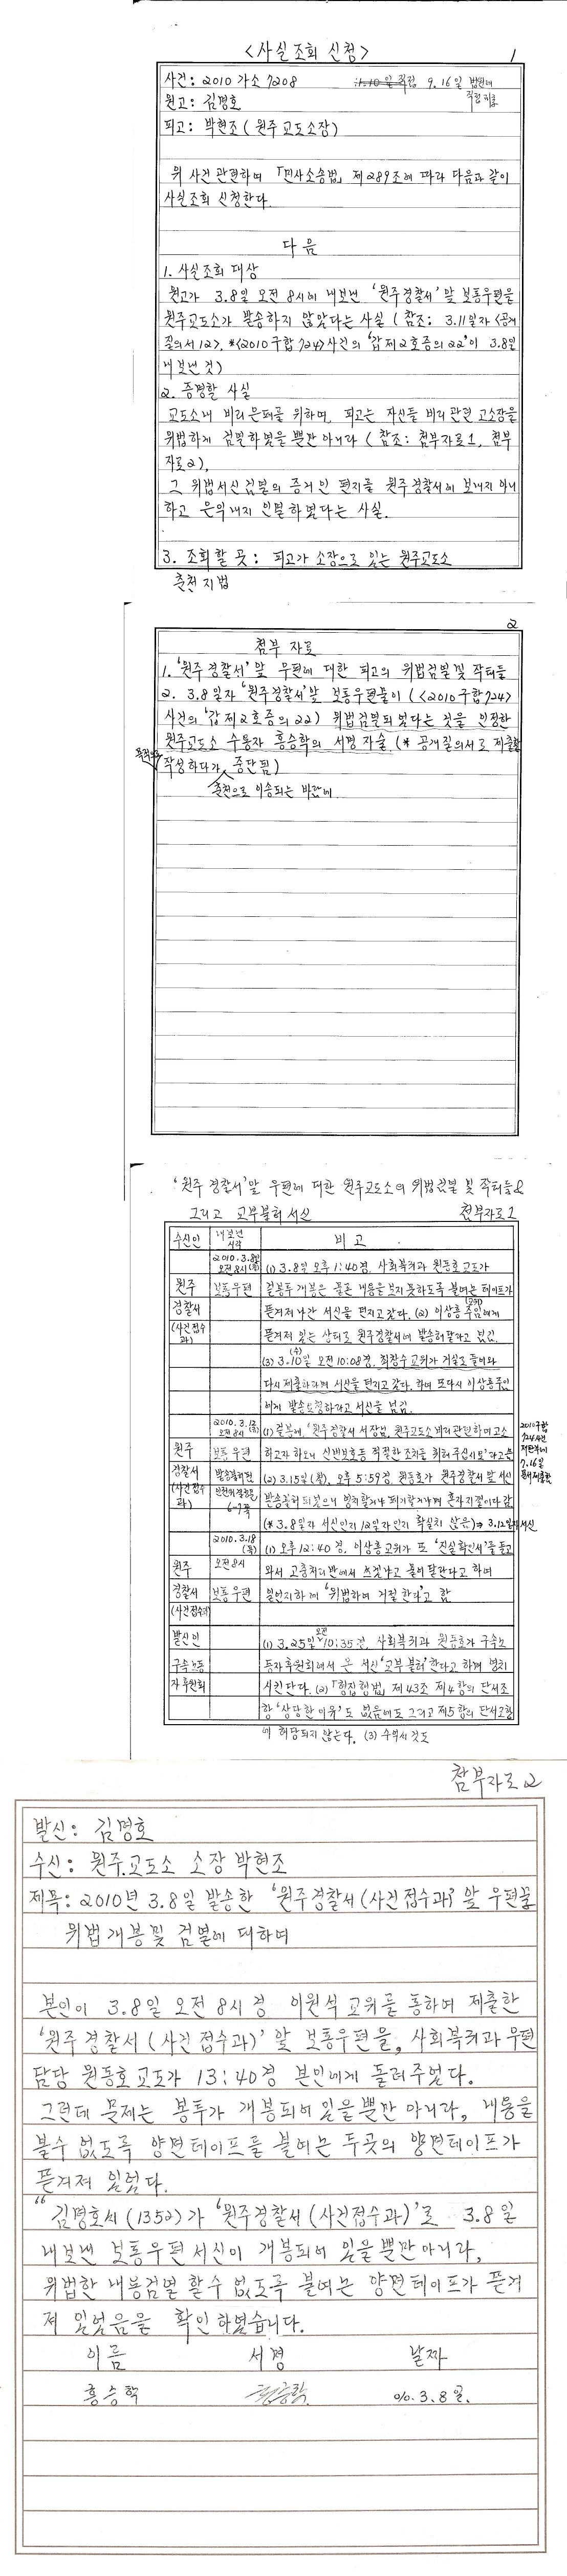 <사실조회 신청> 1
사건: 2010 가소 7208
9.16일 법원에
직접 제출
원고: 김명호
피고: 박현조 (원주교도소장)
위 사건 관련하여 「민사소송법」 제289조에 따라 다음과 같이
사실조회 신청한다.
다음
1. 사실조회 대상
원고가 3.8일 오전 8시에 내보낸 '원주경찰서' 앞 보통우편을
원주교도소가 발송하지 않았다는 사실 (참조: 3.11일자 <공개
질의서 12>, *<2010구합 724>사건의 '갑제2호증의 22'이 3.8일
내보낸 것)
2. 증명할 사실
교도소내 비리 은폐를 위하여, 피고는 자신들 비리 관련 고소장을
위법하게 검열하였을 뿐만 아니라 (참조: 첨부자료1, 첨부
자료2),
그 위법서신검열의 증거인 편지를 원주경찰서에 보내지 아니
하고 은익 내지 인멸하였다는 사실.
3. 조회할 곳: 피고가 소장으로 있는 원주교도소
춘천지법
2
첨부 자료
1. '원주 경찰서'앞 우편에 대한 피고의 위법검열 및 작태들
2. 3.8일자 '원주경찰서'앞 보통우편물이 (<2010구합724>
사건의 '갑 제2호증의 22) 위법검열되었다는 것을 인정한
원주교도소 수용자 홍승학의 서명 자술 (* 공개질의서로 제출할
목적으로
작성하다가 중단됨)
춘천으로 이송되는 바람에
'원주 경찰서'앞 우편에 대한 원주교도소의 위법검열 및 작태들&
그리고 교부불허 서신 첨부자료1
수신인 내보낸 시각 비 고
2010.3.8(월) 오전8시 (1) 3.8일 오후 1:40경, 사회복귀과 원동호교도가
원주 보통우편 겉봉투 개봉은 물론 내용을 보지 못하도록 붙여논 테이프가
경찰서 뜯겨져 나간 서신을 편지고 갔다. (2) 이상흥 주임에게
(사건접수과) 뜯겨져 있는 상태로 원주경찰서에 발송해 달라고 넘김.
(3) 3.10일(수) 오전 10:08경, 최창수 교위가 거실로 들어와
다시 제출하라며 서신을 편지고 갔다. 하여 또다시 이상흥 주임
에게 발송요청하라고 서신을 넘김.
2010.3.12 오전8시(금) (1) 겉봉에, '원주경찰서 서장님, 원주교도소 비리 관련하여 고소
원주 보통우편 하고자 하오니 신변보호등 적절한 조치를 취해 주십시요'라고 씀
경찰서 발송불허편 (2) 3.15일(월), 오후 5:59경, 원동호가 원주경찰서 앞 서신
(사건접수과) 6-7쪽 발송불허 되었으니 영치할거냐 폐기할거냐며 혼자 지껄이다 감
(* 3.8일자 서신인지 12일자인지 확실치 않음) ⇒ 3.12일자 서신
2010구합
724사건
재판부에
7.16일
문서제출함
2010.3.18(목) (1) 오후 12:40경, 이상흥교위가 또 '진실확인서'를 들고
원주 오전8시 와서 고충처리반에서 쓰겠냐고 물어 달란다고 하여
경찰서 보통우편 일언지하에 "위법하여 거절한다"고 함
(사건접수과)
발신인 (1) 3.25일 오전 10:35경, 사회복귀과 원동호가 구속노
구속노동 동자후원회에서 온 서신 '교부 불허'한다고 하며 영치
자후원회 시킨단다. (2) 「형집행법」 제43조 제4항의 단서조
항 '상당한 이유'도 없음에도 그리고 제5항의 단서조항
에 해당되지 않는다. (3) 수부서 것도
첨부자료2
발신: 김명호
수신: 원주교도소 소장 박현조
제목: 2010년 3.8일 발송한 '원주경찰서(사건접수과)' 앞 우편물
위법개봉 및 검열에 대하여
본인이 3.8일 오전 8시경 이원석 교위를 통하여 제출한
'원주경찰서(사건접수과)' 앞 보통우편을, 사회복귀과 우편
담당 원동호 교도가 13:40경 본인에게 돌려주었다.
그런데 문제는 봉투가 개봉되어 있을 뿐만 아니라, 내용을
볼 수 없도록 양면테이프를 붙여논 두곳의 양면테이프가
뜯겨져 있었다.
"김명호씨(1352)가 '원주경찰서(사건접수과)'로 3.8일
내보낸 보통우편 서신이 개봉되어 있을 뿐만 아니라,
위법한 내용검열 할 수 없도록 붙여논 양면테이프가 뜯겨
져 있었음을 확인하였습니다.
이름 서명 날짜
홍승학 홍승학 010.3.8일.